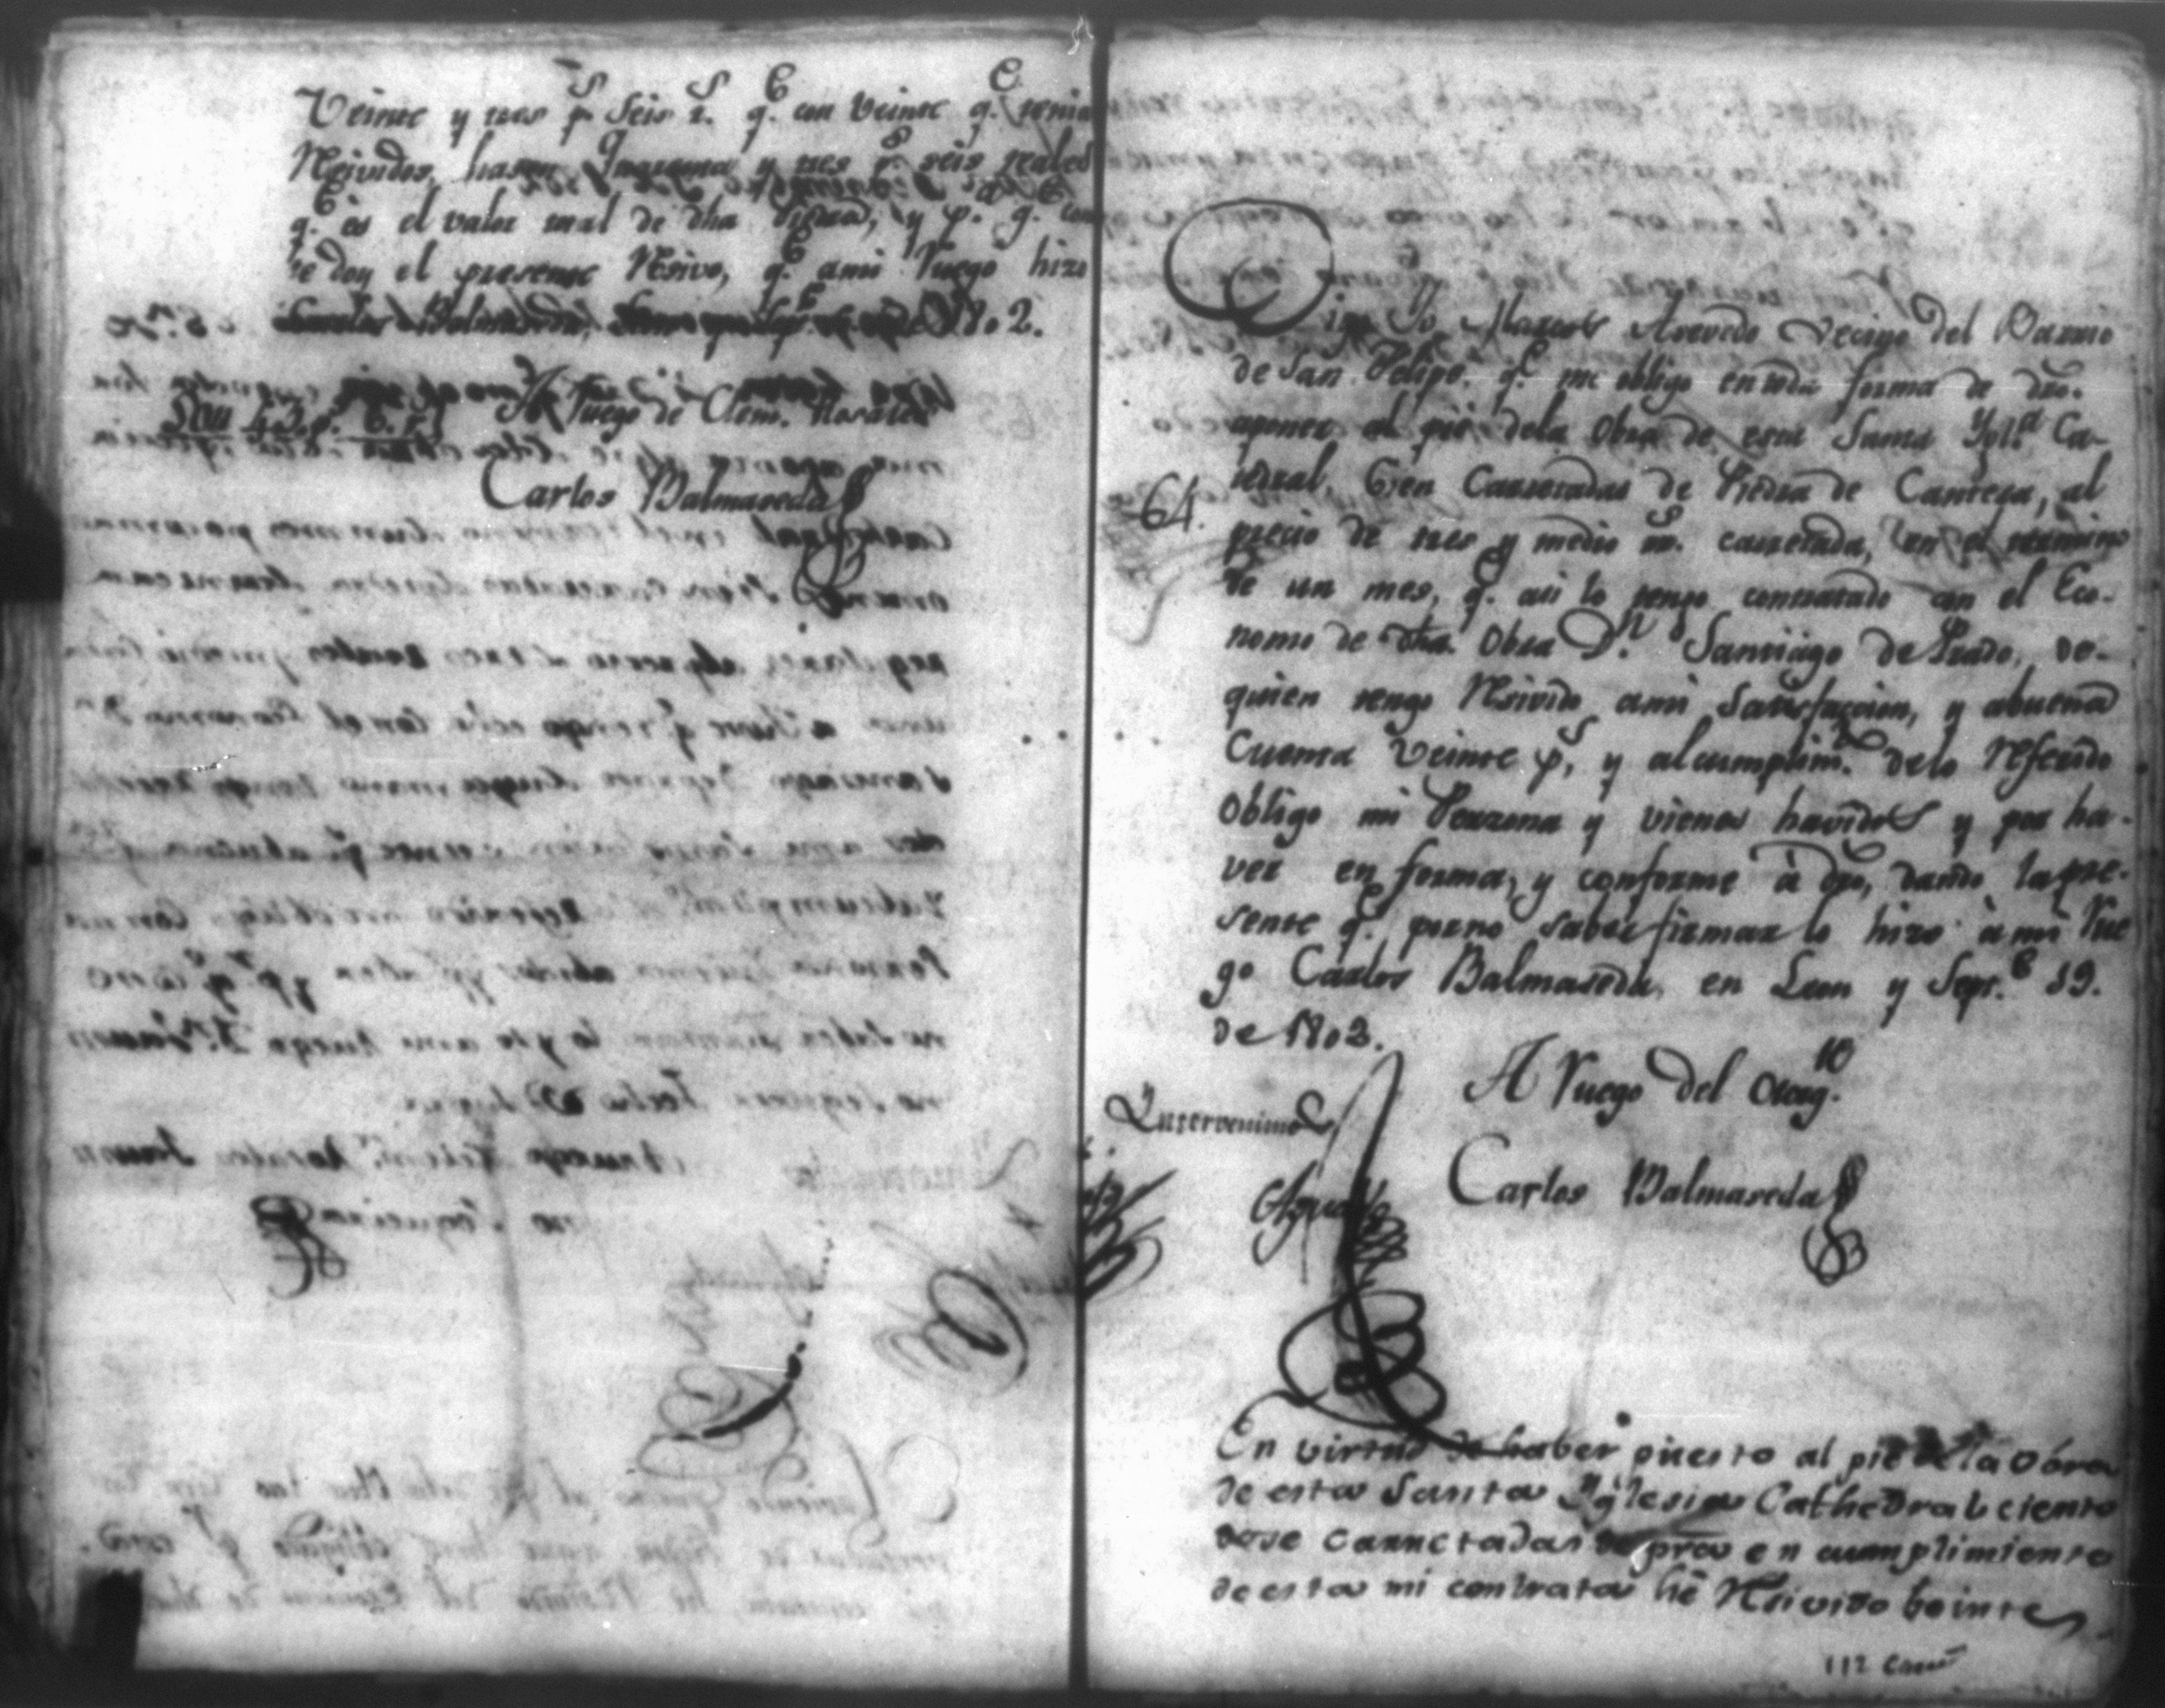 Veinte y tres p.s Seis r.s q.e con Veinte q.e tenia
Resividos, hasen Quarenta y tres p.s seis reales
q.e es el valor total de dha Piedra, y p.a q.e cons
te doy el presente Resivo, q.e ami Ruego hizo
Carlos Balmaseda, 1802.
Son 43 p.s 6. r.s
A Ruego de Clem.te Rosales
Carlos Balmaseda
Digo Yo Marcos Asevedo Vecino del Barrio
de San Felipe, q.e me obligo en toda forma de dro.
aponer al pie dela Obra de esta Santa Ygl.a Ca-
tedral, Cien Carretadas de Piedra de Cantera, al
64.
precio de tres y medio rr.s carretada, en el termino
de un mes, q.e asi lo tengo contratado con el Eco-
nomo de dha. Obra D.n Santiago de Prado, de-
quien tengo Resivido ami Satisfaccion, y abuena
Cuenta Veinte p.s, y alcumplim.to delo Referido
Obligo mi Perzona y vienes havidos y por ha-
ver en forma, y conforme à dro, dando lapre-
sente q.e porno saber firmar lo hizo à mi Rue
go Carlos Balmaseda, en Leon y Sept.e 19.
de 1802.
A Ruego del otorg.te
Intervenimos
Carlos Balmaseda
Aguado
En virtud de haber puesto al pie de la obra
de esta Santa Yglesia Cathedral ciento
dose carretadas de pra en cumplimiento
de esta mi contrata hé Resivido beinte
112 Carr.s